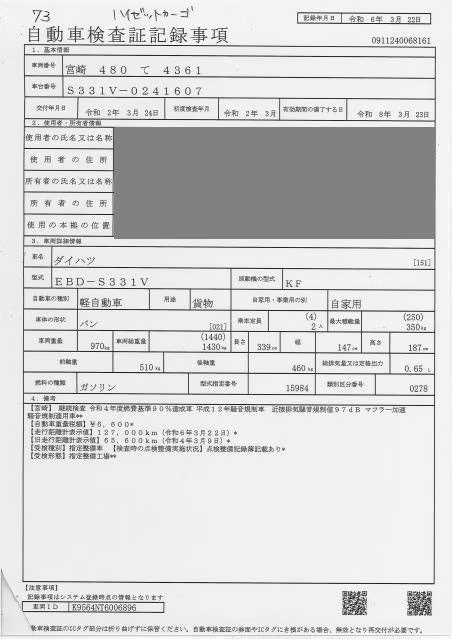 73 ハイゼットカーゴ
記録年月日 令和 6年 3月 22日
自動車検査証記録事項
0911240068161
1．基本情報
車両番号 宮崎 480 て 4361
車台番号 S331V-0241607
交付年月日 令和 2年 3月 24日 初度検査年月 令和 2年 3月 有効期間の満了する日 令和 8年 3月 23日
2．使用者・所有者情報
使用者の氏名又は名称
使用者の住所
所有者の氏名又は名称
所有者の住所
使用の本拠の位置
3．車両詳細情報
車名 ダイハツ [151]
型式 EBD-S331V 原動機の型式 KF
自動車の種別 軽自動車 用途 貨物 自家用・事業用の別 自家用
車体の形状 バン [021] 乗車定員 (4) 2人 最大積載量 (250) 350kg
車両重量 970kg 車両総重量 (1440) 1430kg 長さ 339cm 幅 147cm 高さ 187cm
前軸重 510kg 後軸重 460kg 総排気量又は定格出力 0.65 L
燃料の種類 ガソリン 型式指定番号 15984 類別区分番号 0278
4．備考
【宮崎】 継続検査 令和4年度燃費基準90％達成車 平成12年騒音規制車 近接排気騒音規制値97dB マフラー加速
騒音規制適用車**
【自動車重量税額】￥6,600*
【走行距離計表示値】127,000km（令和6年3月22日）*
【旧走行距離計表示値】65,600km（令和4年3月9日）*
【受検種別】指定整備車 【検査時の点検整備実施状況】点検整備記録簿記載あり*
【受検形態】指定整備工場**
【注意事項】
記録事項はシステム登録時点の情報となります
車両ID K9564NT6006896
動車検査証のICタグ部分は折り曲げずに保管ください。自動車検査証の券面やICタグにき損がある場合、無効となり再交付が必要です。